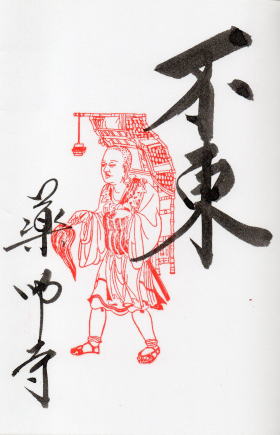 不東
薬師寺